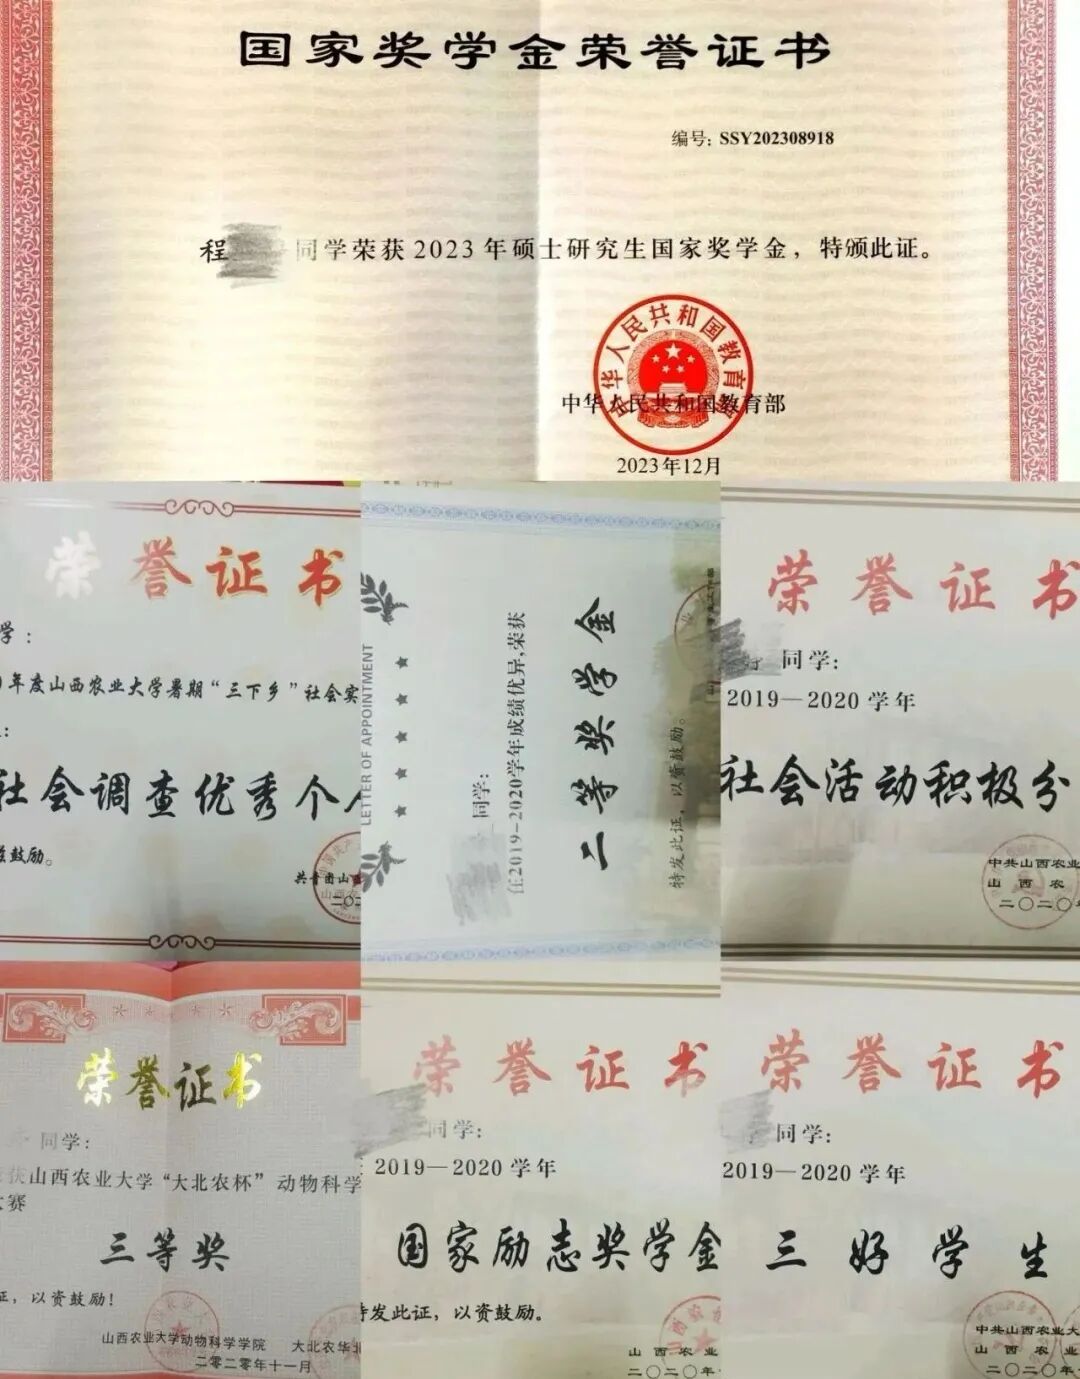 国家奖学金荣誉证书
编号: SSY202308918
程 同学荣获2023年硕士研究生国家奖学金，特颁此证。
中华人民共和国教育部
中华人民共和国教育部
2023年12月
荣誉证书
学：
年度山西农业大学暑期“三下乡”社会实
社会调查优秀个
鼓励。
共青团山
LETTER OF APPOINTMENT
同学:
在2019-2020学年成绩优异,荣获
二等奖学金
特发此证，以资鼓励。
荣誉证书
同学:
2019—2020学年
社会活动积极分
中共山西农业大
山西农
二〇二〇年
荣誉证书
同学:
获山西农业大学“大北农杯”动物科学
赛
三等奖
证，以资鼓励！
山西农业大学动物科学学院 大北农华北
二零二零年十一月
荣誉证书
同学:
2019—2020学年
国家励志奖学金
特发此证，以资鼓励。
山西农业
二〇二〇年
荣誉证书
同学:
2019—2020学年
三好学生
中共山西农业大
山西农业
二〇二〇年